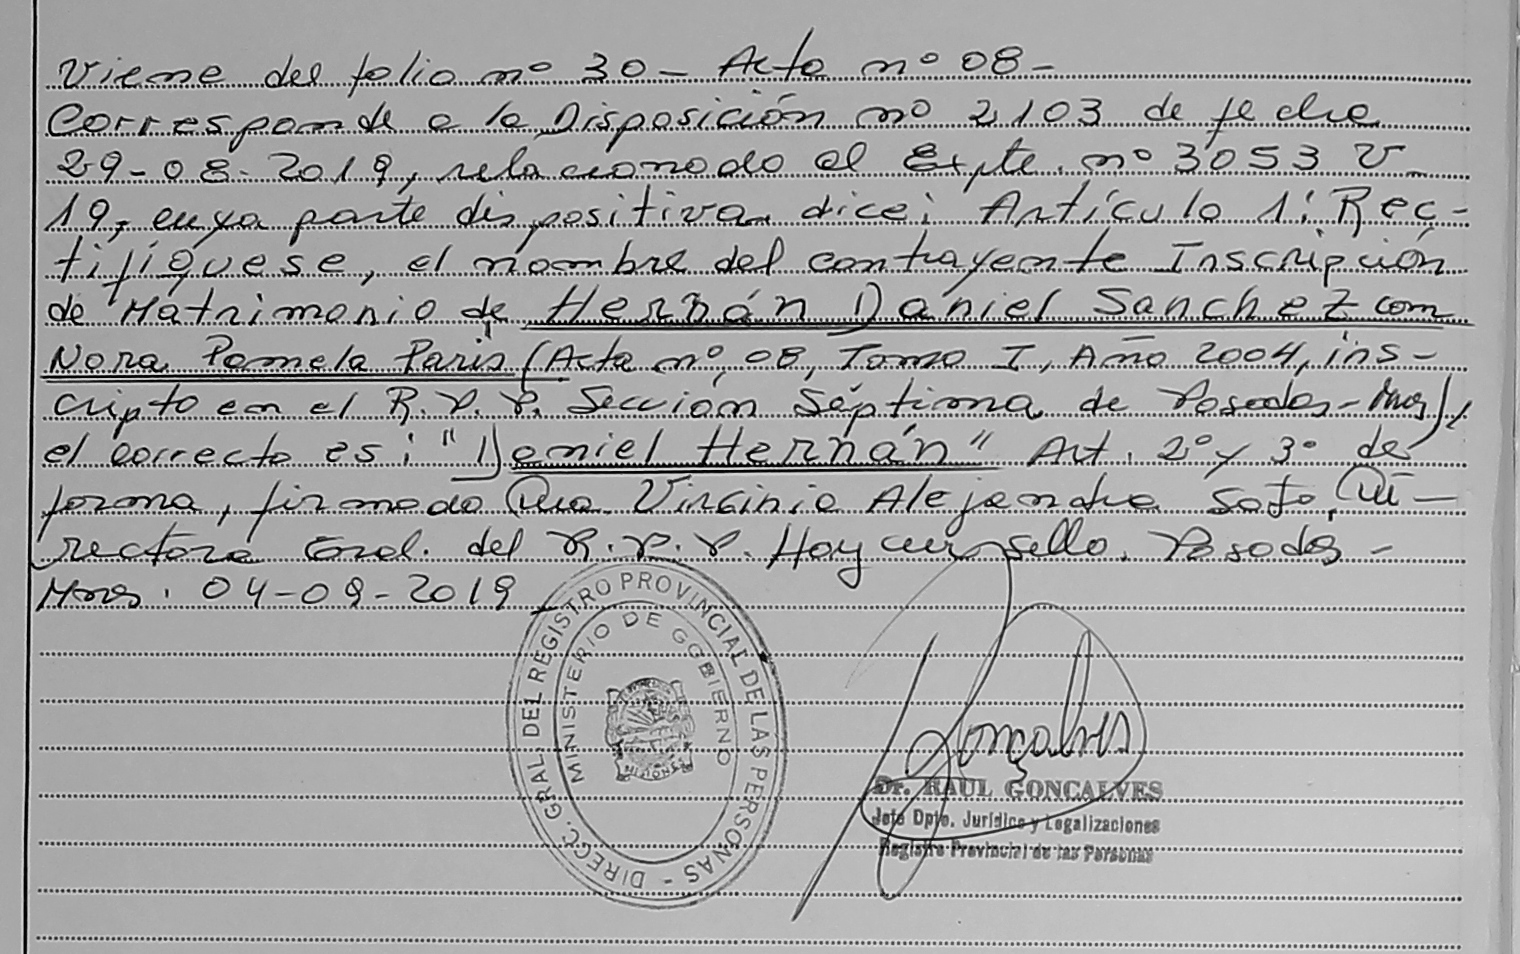 Viene del folio nº 30 - Acta nº 08 -
Corresponde a la Disposición nº 2103 de fecha
29-08-2019, relacionado al Expte. nº 3053 V-
19, cuya parte dispositiva dice: Artículo 1: Rec-
tifíquese, el nombre del contrayente Inscripción
de Matrimonio de Hernán Daniel Sanchez con
Nora Pamela Paris (Acta nº 08, Tomo I, Año 2004, ins-
cripto en el R.P.P. Sección Séptima de Posadas-Mnes)
el correcto es: "Daniel Hernán" Art. 2º y 3º de
forma, firmado Dra. Virginia Alejandra Soto, Di-
rectora Gral. del R.P.P. Hay un sello. Posadas -
Mnes. 04-09-2019
DIRECC. GRAL. DEL REGISTRO PROVINCIAL DE LAS PERSONAS -
MINISTERIO DE GOBIERNO
MISIONES
Gonçalves
Dr. RAUL GONCALVES
Jefe Dpto. Jurídico y Legalizaciones
Registro Provincial de las Personas